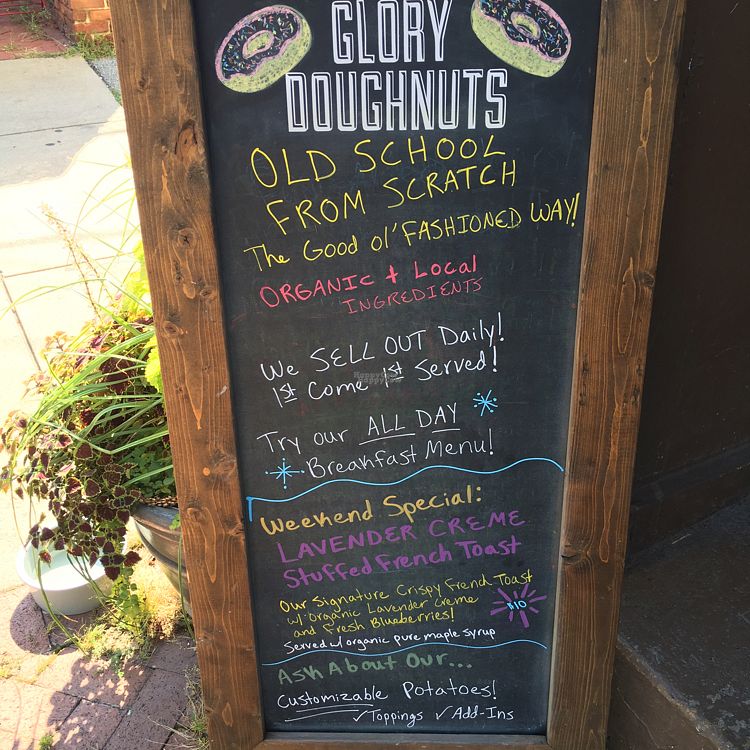 GLORY
DOUGHNUTS
OLD SCHOOL
FROM SCRATCH
The Good ol' FASHIONED WAY!
ORGANIC + Local
INGREDIENTS
We SELL OUT Daily!
1st Come 1st Served!
Try our ALL DAY
Breakfast Menu!
Weekend Special:
LAVENDER CREME
Stuffed French Toast
Our Signature Crispy French Toast
w/ Organic Lavender Creme
and Fresh Blueberries!
$10
Served w/ organic pure maple syrup
Ask About Our...
Customizable Potatoes!
✓Toppings ✓Add-Ins